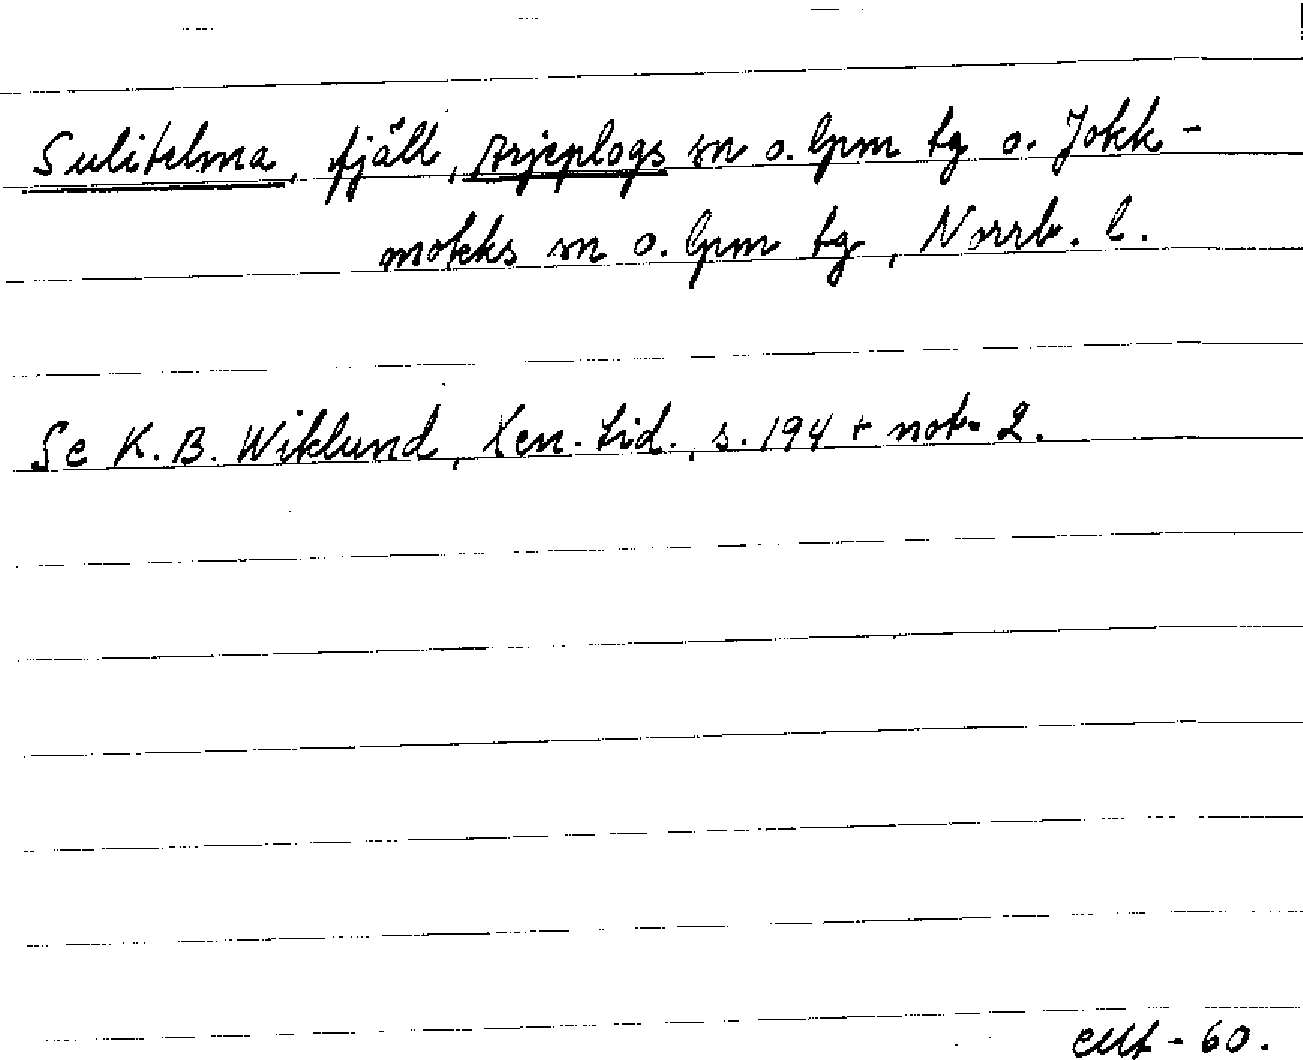 Sulitelma, fjäll, Arjeplogs sn o. lpm tg o. Jokk-
mokks sn o. lpm tg, Norrb. l.
Se K. B. Wiklund, Xen. Lid., s. 194 + not 2.
-60.